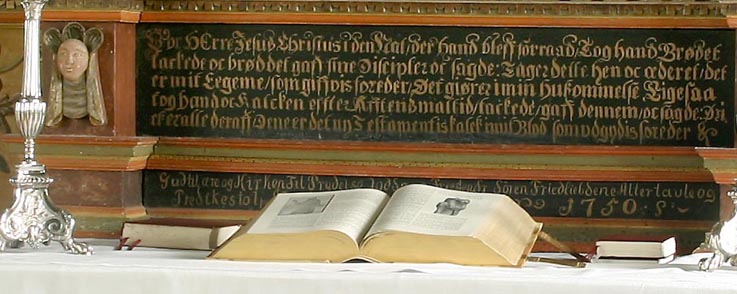 Vor HErre Jesus Christus i den Nat, der hand bleff forraad, Tog hand Brødet
tackede oc brød det gaff sine Discipler oc sagde: Tager dette hen oc æderet, det
er mit Legeme, som giffvis for eder, Det giører i min hukommelse. Lige saa
tog hand oc Kalcken efter Afftens maltid, tackede, gaff dennem, oc sagde: Dri
cker alle deraff, Denne er det ny Testamentis kalck i mit Blod som udgydis for eder &
Gud til ære og Kirken Til Prydelse Sören Friedlieb dene Altertavle og
Predikestol 1750